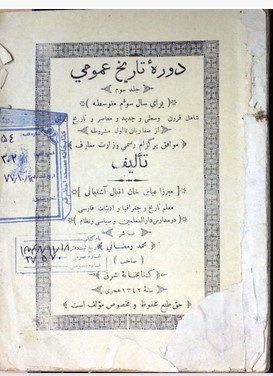 دورهٔ تاریخ عمومي
جلد سوم
﴿ براي سال سوم متوسطه ﴾
شامل قرون وسطی و جدید و معاصر و تاریخ
از صفاریان تا اول مشروطه
﴿ موافق پرگرام رسمی وزارت معارف ﴾
تألیف
[ میرزا عباس خان اقبال آشتیانی ]
معلم تاریخ و جغرافیا و ادبیات فارسی
( در مدارس دارالمعلمین و سیاسی و نظام )
ناشر
محمد رمضانی
( صاحب )
کتابخانهٔ شرق
سنهٔ ۱۳۴۲ هجری
حق طبع محفوظ و مخصوص مؤلف است